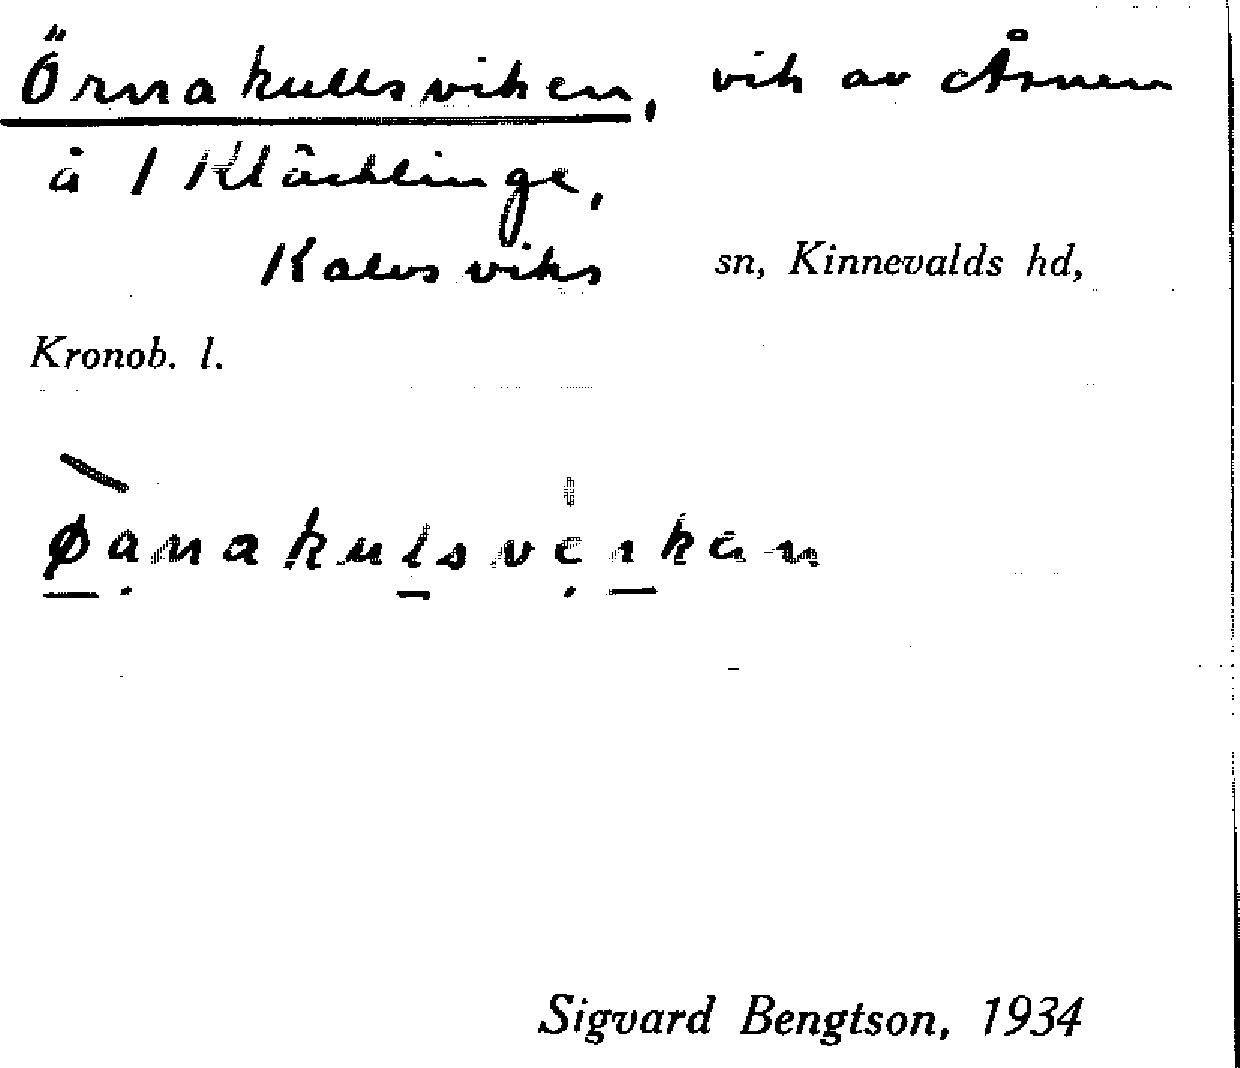 Örnakullsviken, vik av Åsnen
å 1 Kläcklinge,
Kalvsviks sn, Kinnevalds hd,
Kronob. l.
øanakulsveıkan
Sigvard Bengtson, 1934